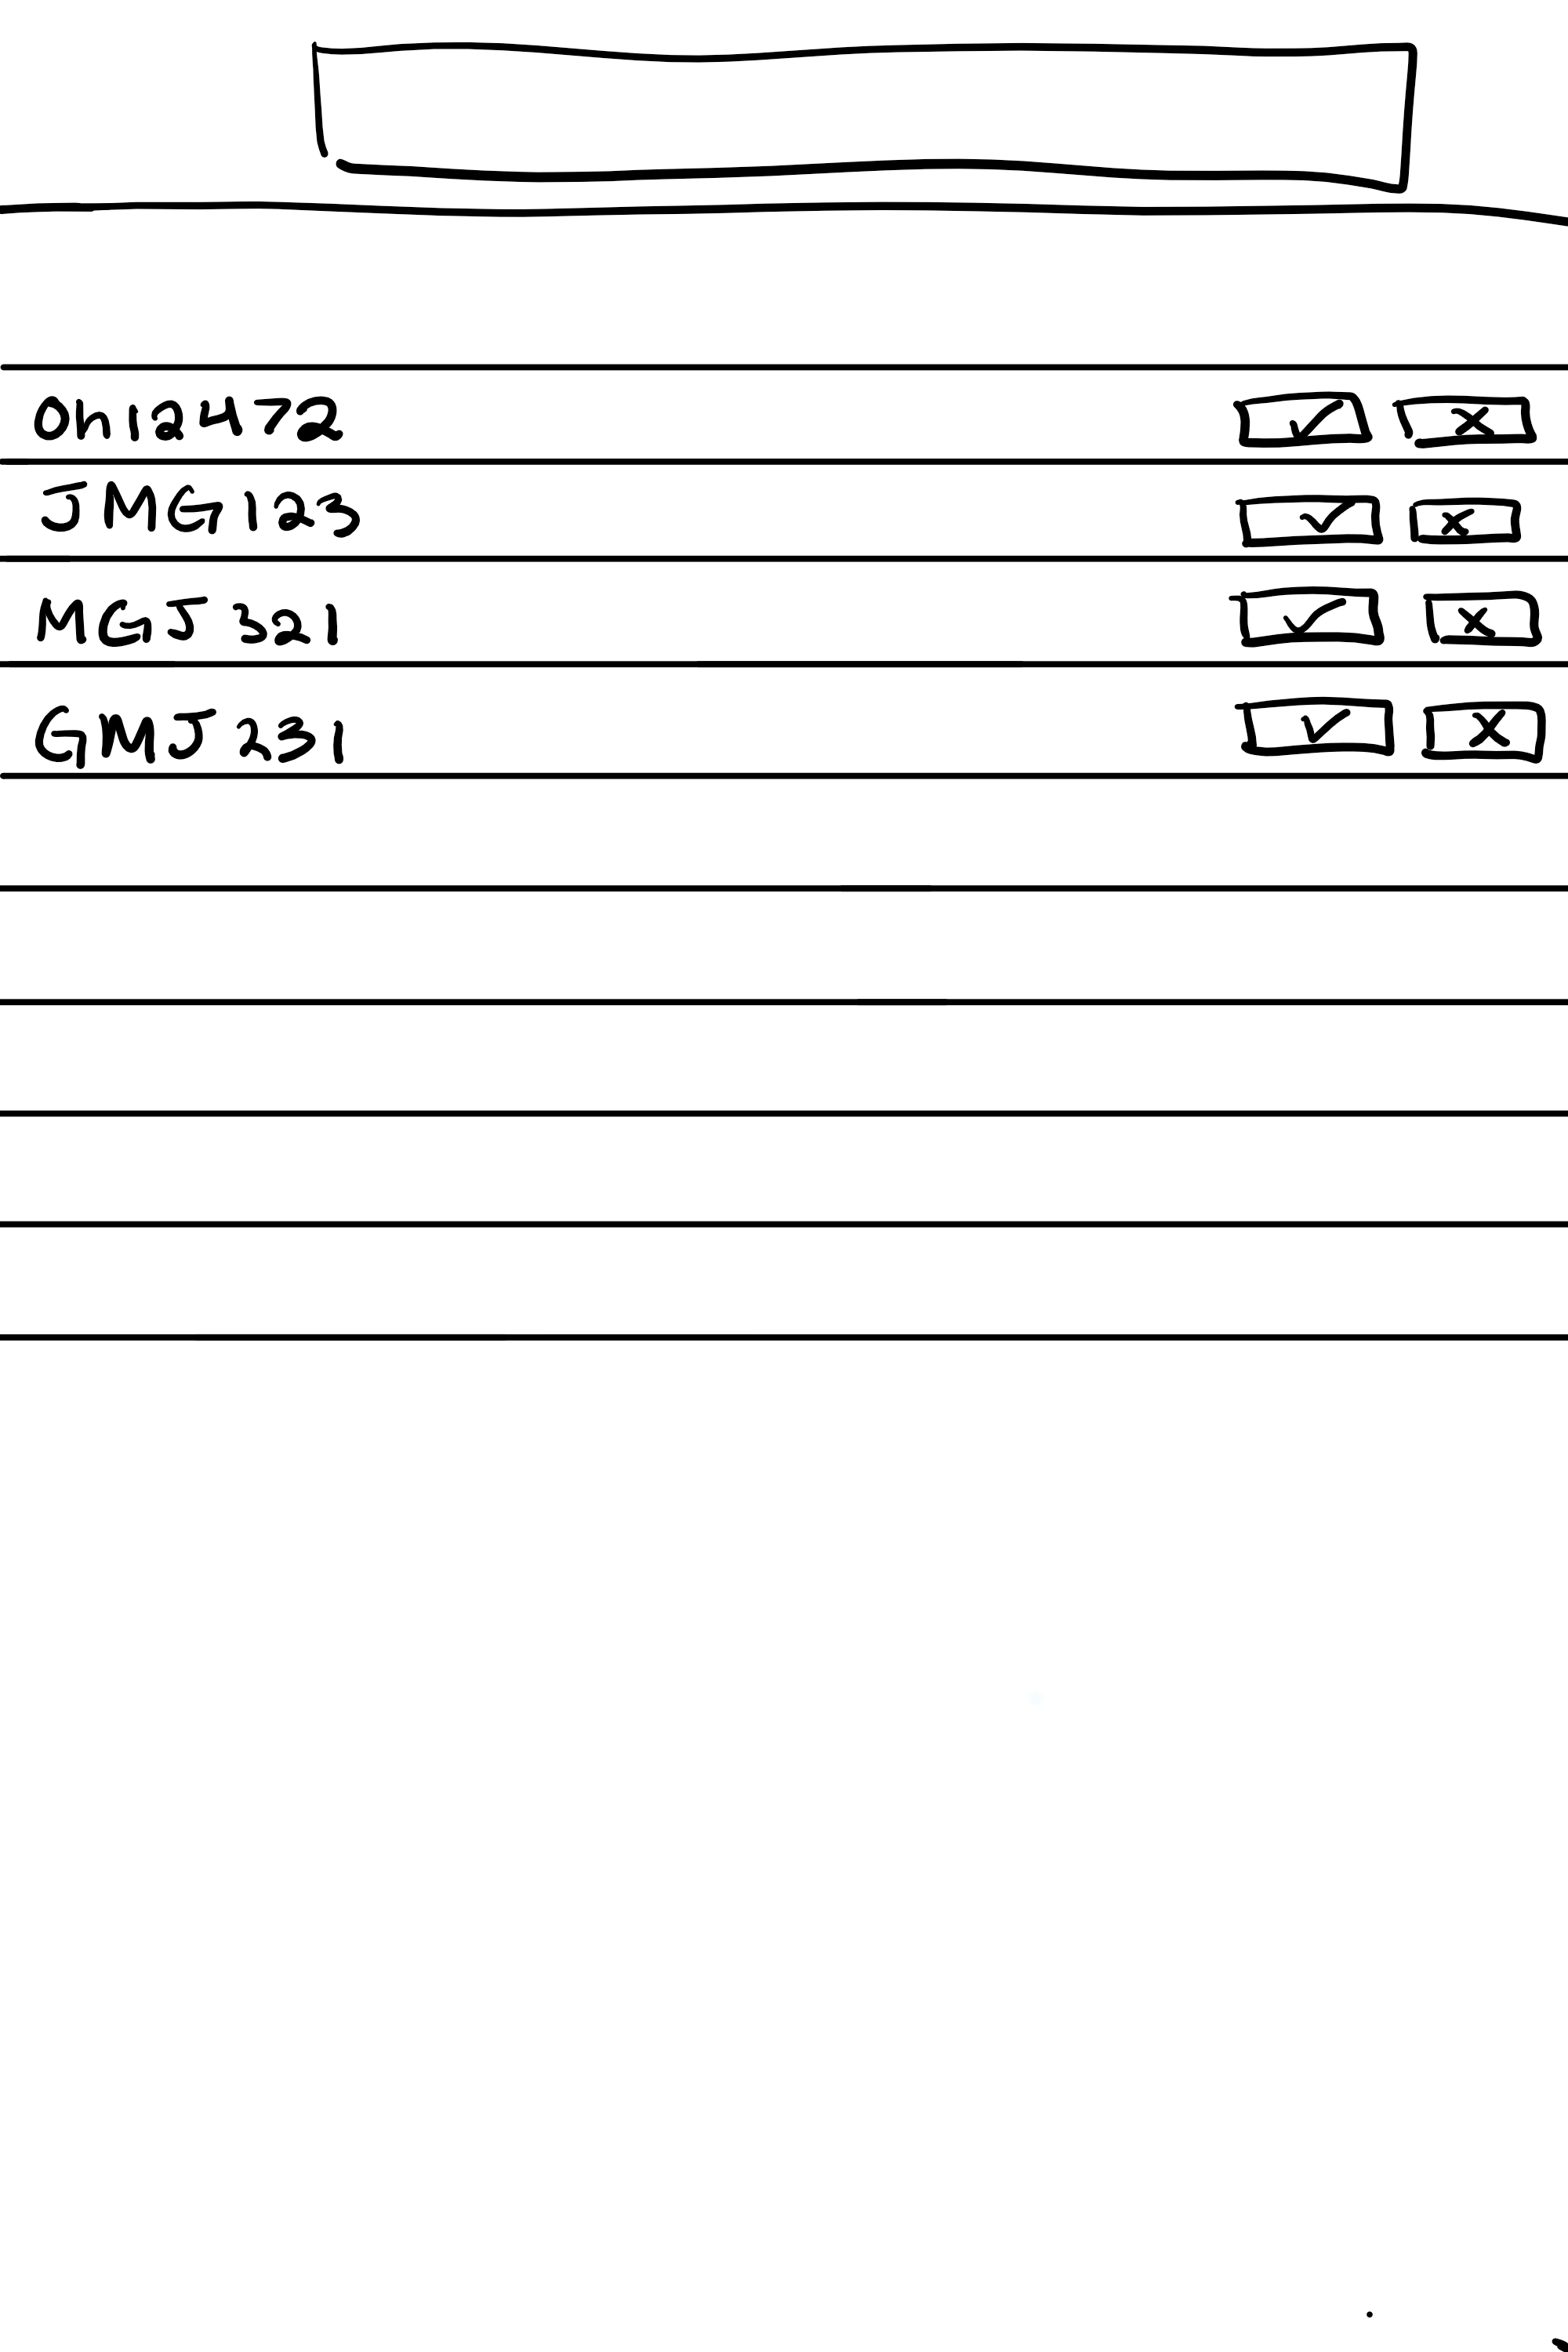 Oh12472
JMG123
MGJ321
GMJ231